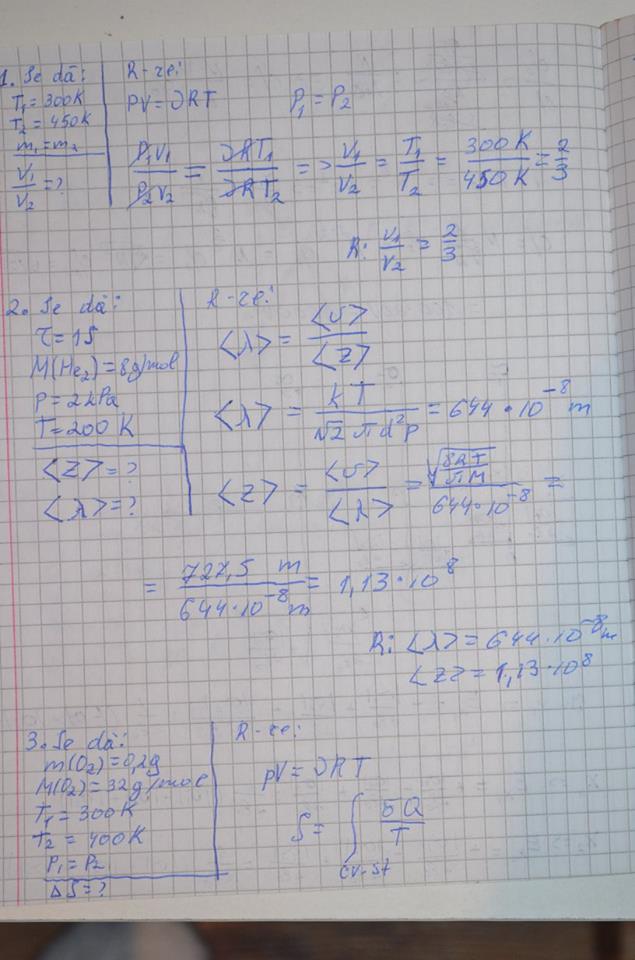 1. Se dă:
T₁ = 300K
T₂ = 450K
m₁ = m₂
V₁/V₂ = ?
R-re:
PV = νRT P₁ = P₂
P₁V₁/P₂V₂ = νRT₁/νRT₂ => V₁/V₂ = T₁/T₂ = 300K/450K = 2/3
R: V₁/V₂ = 2/3
2. Se dă:
τ = 1s
M(He₂) = 8g/mol
p = 2kPa
T = 200 K
<z> = ?
<λ> = ?
R-re:
<λ> = <v>/<z>
<λ> = kT/√2πd²p = 644·10⁻⁸ m
<z> = <v>/<λ> = √(8RT/πM)/644·10⁻⁸ =
= 727,5 m/644·10⁻⁸m = 1,13·10⁸
R: <λ> = 644·10⁻⁸m
<z> = 1,13·10⁸
3. Se dă:
m(O₂) = 0,2g
M(O₂) = 32g/mol
T₁ = 300K
T₂ = 400K
P₁ = P₂
ΔS = ?
R-re:
pV = νRT
S = ∫ δQ/T
cv-st